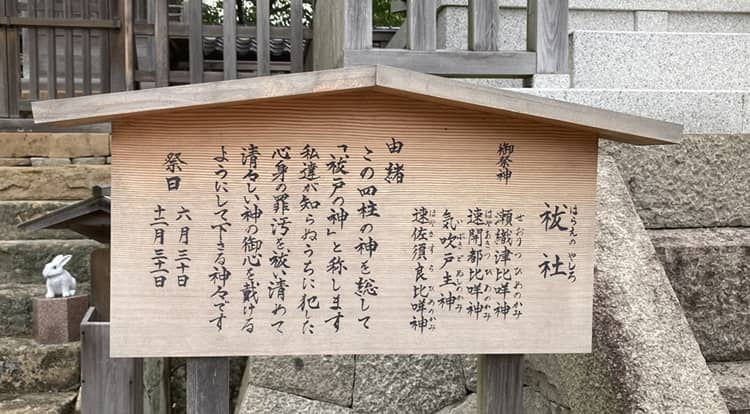 祓社
はらえの やしろ
御祭神
瀬織津比咩神
せおりつひめのかみ
速開都比咩神
はやあきつひめのかみ
気吹戸主神
いぶきどぬしのかみ
速佐須良比咩神
はやさすらひめのかみ
由緒
この四柱の神を総して
「祓戸の神」と称します
私達が知らぬうちに犯した
心身の罪汚を祓い清めて
清々しい神の御心を戴ける
ようにして下さる神々です
祭日
六月三十日
十二月三十一日